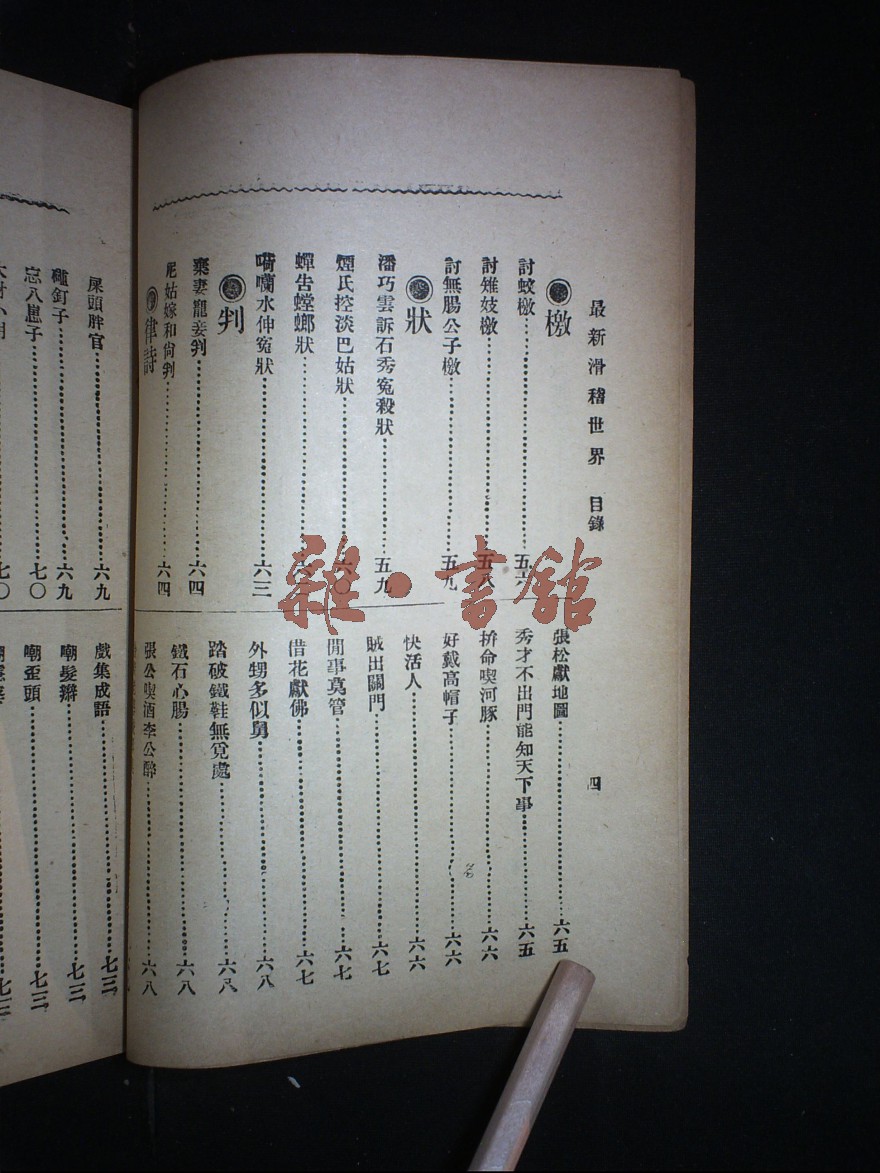 最新滑稽世界 目錄
四
檄
討蚊檄 五六
討雉妓檄 五八
討無腸公子檄 五九
狀
潘巧雲訴石秀冤殺狀 五九
煙氏控淡巴姑狀 六〇
蟬告螳螂狀
嗬囒水伸冤狀 六三
判
棄妻寵妾判 六四
尼姑嫁和尙判 六四
律詩
張松獻地圖 六五
秀才不出門能知天下事 六五
拚命喫河豚 六六
好戴高帽子 六六
快活人 六六
賊出關門 六七
閒事莫管 六七
借花獻佛 六七
外甥多似舅 六八
踏破鐵鞋無覓處 六八
鐵石心腸 六八
張公喫酒李公醉 六八
屎頭胖官 六九
碰釘子 六九
忘八崽子 七〇
七〇
戲集成語 七三
嘲髮辮 七三
嘲歪頭 七三
七三
雜·書館